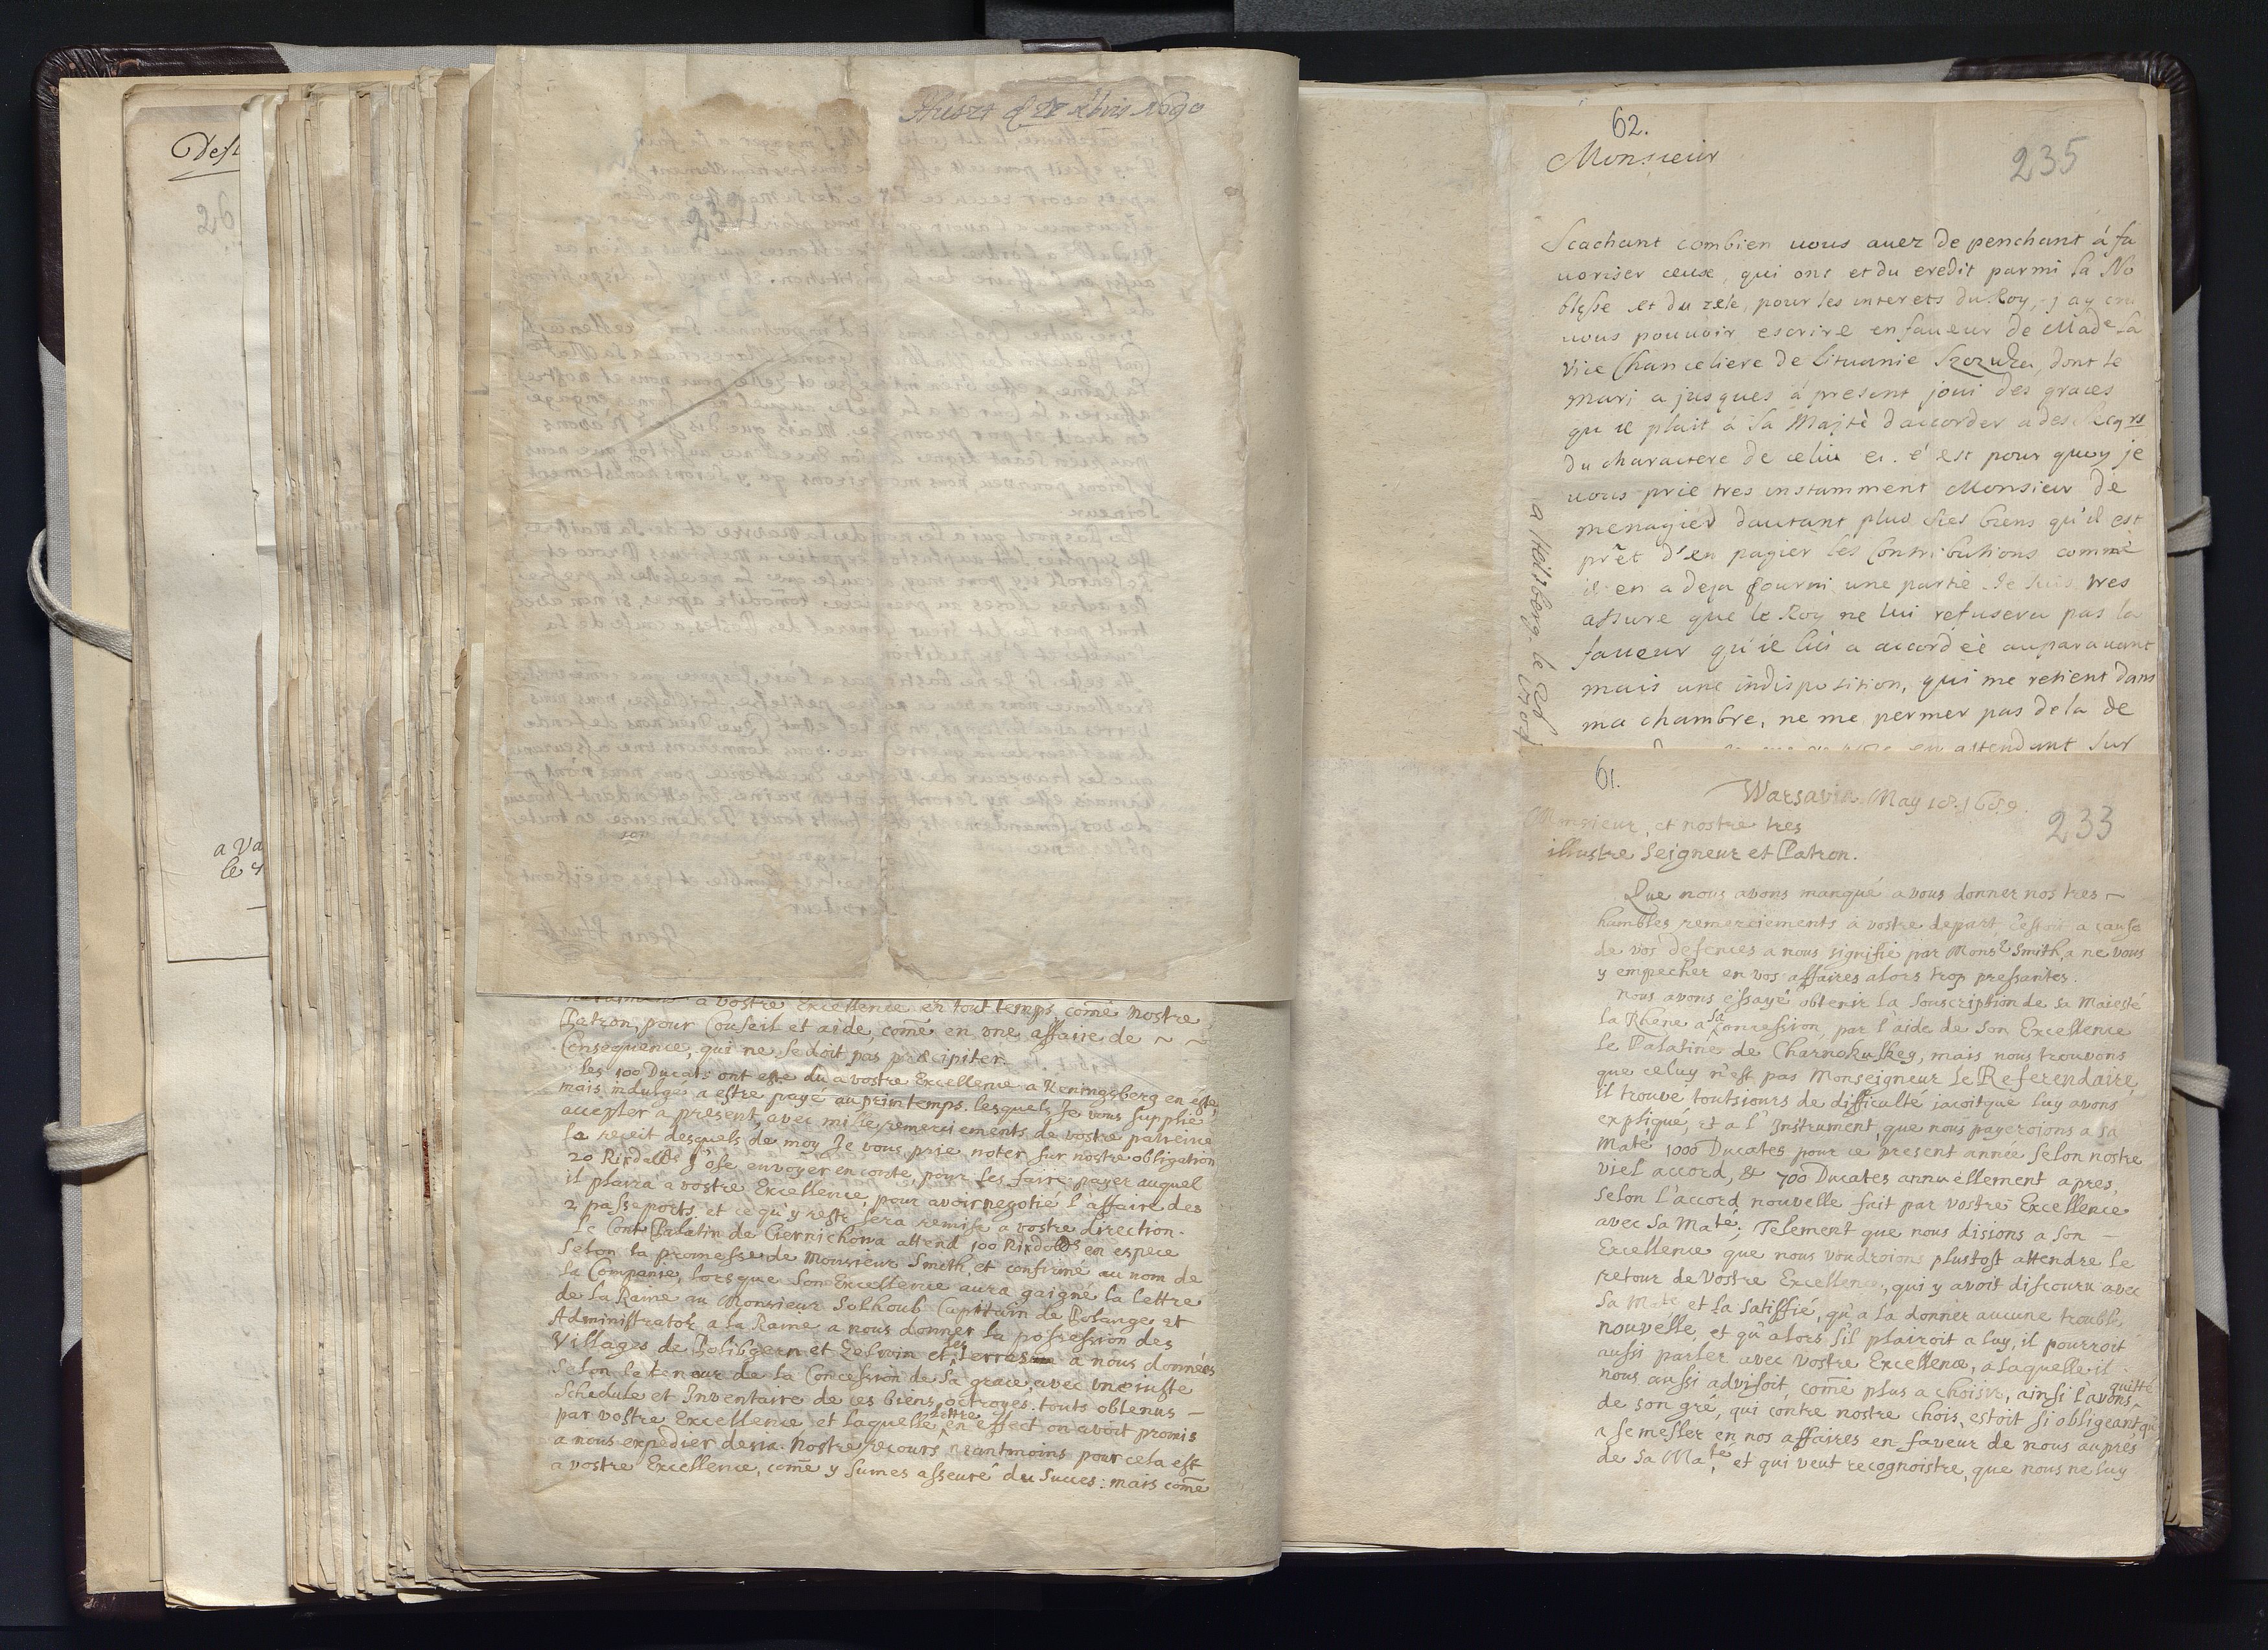 Dest
26
a Va
le 4
Huszt d 28 Xbris 1690
23
recouriment a vostre Excellence en tout temps, come Nostre
Patron, pour Conseil et aide, come en une affaire de ~ ~
Consequence, qui ne se doit pas præcipiter.
les 100 Ducats ont este du a vostre Excellence a Keningsberg en esté,
mais indulgé a estre payé au printemps. lesquels Je vous supplie
accepter a present, avec mille remerciements de vostre patience
la receit desquels de moy Je vous prie noter sur nostre obligation
20 Rixdolls J'ose envoyer en conte, pour les faire payer auquel
il plaira a vostre Excellence, pour avoir negotié l'affaire des
2 passeports, et ce qu'y reste sera remise a vostre direction.
Le Cont Palatin de Ciernichowa attend 100 Rixdolls en espece
selon la promesse de Monsieur Smith, et confirmé au nom de
la Companie, lors que son Excellence aura gaigné la lettre
de la Raine au Monsieur Solhoub Capitain de Polange et
Administrator a la Raine a nous donner la possession des
Villages de Polibgern et Zelwin et les terres a nous données
selon le tenour de la Concession de sa grace, avec une iuste
Schedule et Inventaire de ces biens octroyés. touts obtenus —
par vostre Excellence, et laquelle lettre en effect on avoit promis
a nous expedier desia. Nostre recours neantmoins pour cela est
a vostre Excellence, come y sumes asseuré du Succes: mais come
62.
Monsieur
235
Scachant combien uous auez de penchant á fa
uoriser ceux, qui ont et du credit parmi la No
blesse et du zele, pour les interets du Roy, j ay cru
uous pouuoir escrire en faueur de Made la
Vice Chanceliere de Lituanie Szczuka, dont le
mari a jusques à present joui des graces
qu il plait à sa Majtè d'accorder a des Segrs
du charactere de celui ci. c' est pour quoy je
uous prie tres instamment Monsieur de
menagier dautant plus ses biens qu'il est
prêt d'en pagier les Contributions comme
il en a deja fourni une partie. Je suis tres
assure que le Roy ne lui refusera pas la
faueur qu'il lui a accordèe auparauant
mais une indisposition, qui me retient dans
ma chambre, ne me permet pas de la de
en attendant sur
a Heilsberg. le 26
1704
61.
Warsavia May 18. 1689.
233
Monsieur, et nostre tres
illustre Seigneur et Patron.
Que nous avons manqué a vous donner nos tres ~
humbles remerciements a vostre depart, c'estoit a cause
de vos defences a nous signifié par Monsr Smith, a ne vous
y empecher en vos affaires alors trop pressantes.
Nous avons essayé obtenir la Souscription de sa Maiesté
la Rhene a sa Concession, par l'aide de son Excellence
le Palatine de Charnokuskey, mais nous trouvons
que celuy n'est pas Monseigneur le Referendaire,
il trouve toutsiours de difficulté jacoitque luy avons
expliqué, et a l' Instrument, que nous payeroions a sa
Maté 1000 Ducates pour ce present année selon nostre
viel accord, & 700 Ducates annuellement apres,
selon l'accord nouvelle fait par vostre Excellence
avec sa Maté; Telement que nous disions a son —
Excellence que nous voudroions plustost attendre le
retour de Vostre Excellence, qui y avoit discouru avec
sa Maté et la satiffié, qu'a la donner aucune trouble
nouvelle, et qu'alors s'il plairoit a luy, il pourroit
aussi parler avec Vostre Excellence, a laquelle il
nous aussi advisoit, come plus a choisir, ainsi l'avons quitté
de son gré, qui contre nostre chois, estoit si obligeant, qu
a se mesler en nos affaires en faveur de nous aupres
de sa Maté, et qui veut recognoistre, que nous ne luy